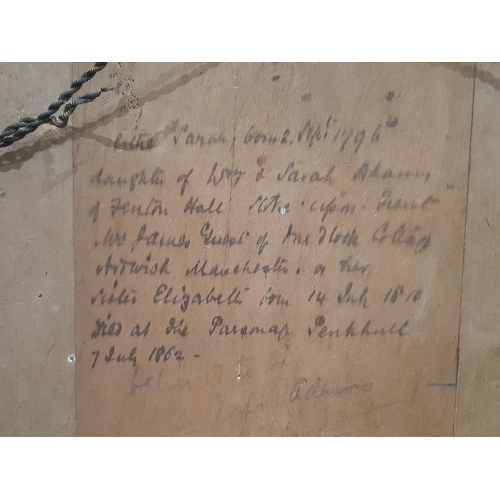 Either Sarah, born 2. Sept 1796
daughter of Wm & Sarah Adams
of Fenton Hall Stoke upon Trent
Mrs James Guest of Ivy Cottage
Ardwick Manchester. or her
sister Elizabeth born 14 July 1810
Died at the Parsonage Penkhull
7 July 1862 -
Adams